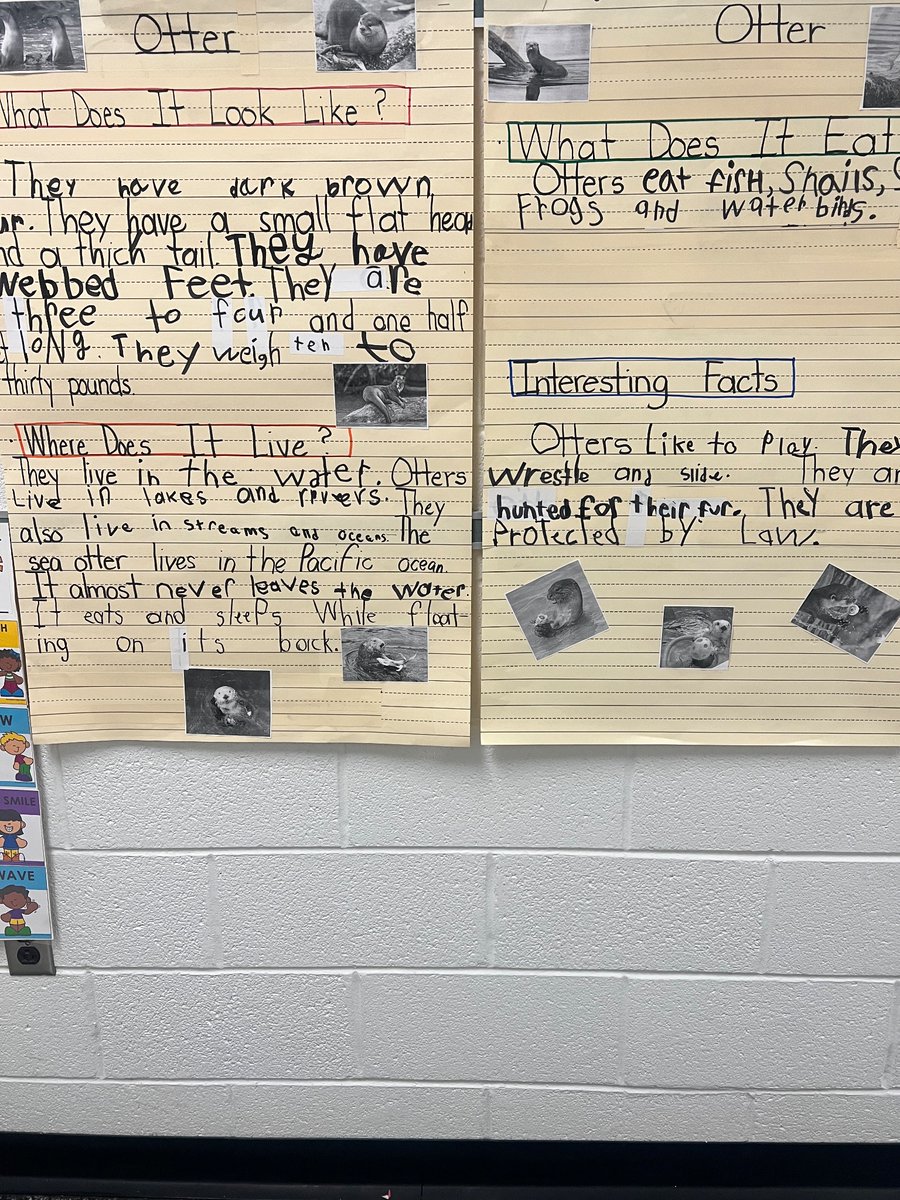 Otter
What Does It Look Like?
They have dark brown
ur. They have a small flat head
nd a thick tail. They have
webbed Feet. They are
three to four and one half
long. They weigh ten to
thirty pounds.
Where Does It Live?
They live in the water. Otters
Live in lakes and rivers. They
also live in streams and oceans. The
sea otter lives in the Pacific ocean.
It almost never leaves the water.
It eats and sleeps While float-
ing on its back.
Otter
What Does It Eat
Otters eat fish, Snails, S
Frogs and water birds.
Interesting Facts
Otters Like to Play. They
wrestle and slide. They ar
hunted for their fur. They are
Protected by Law.
H
W
SMILE
WAVE